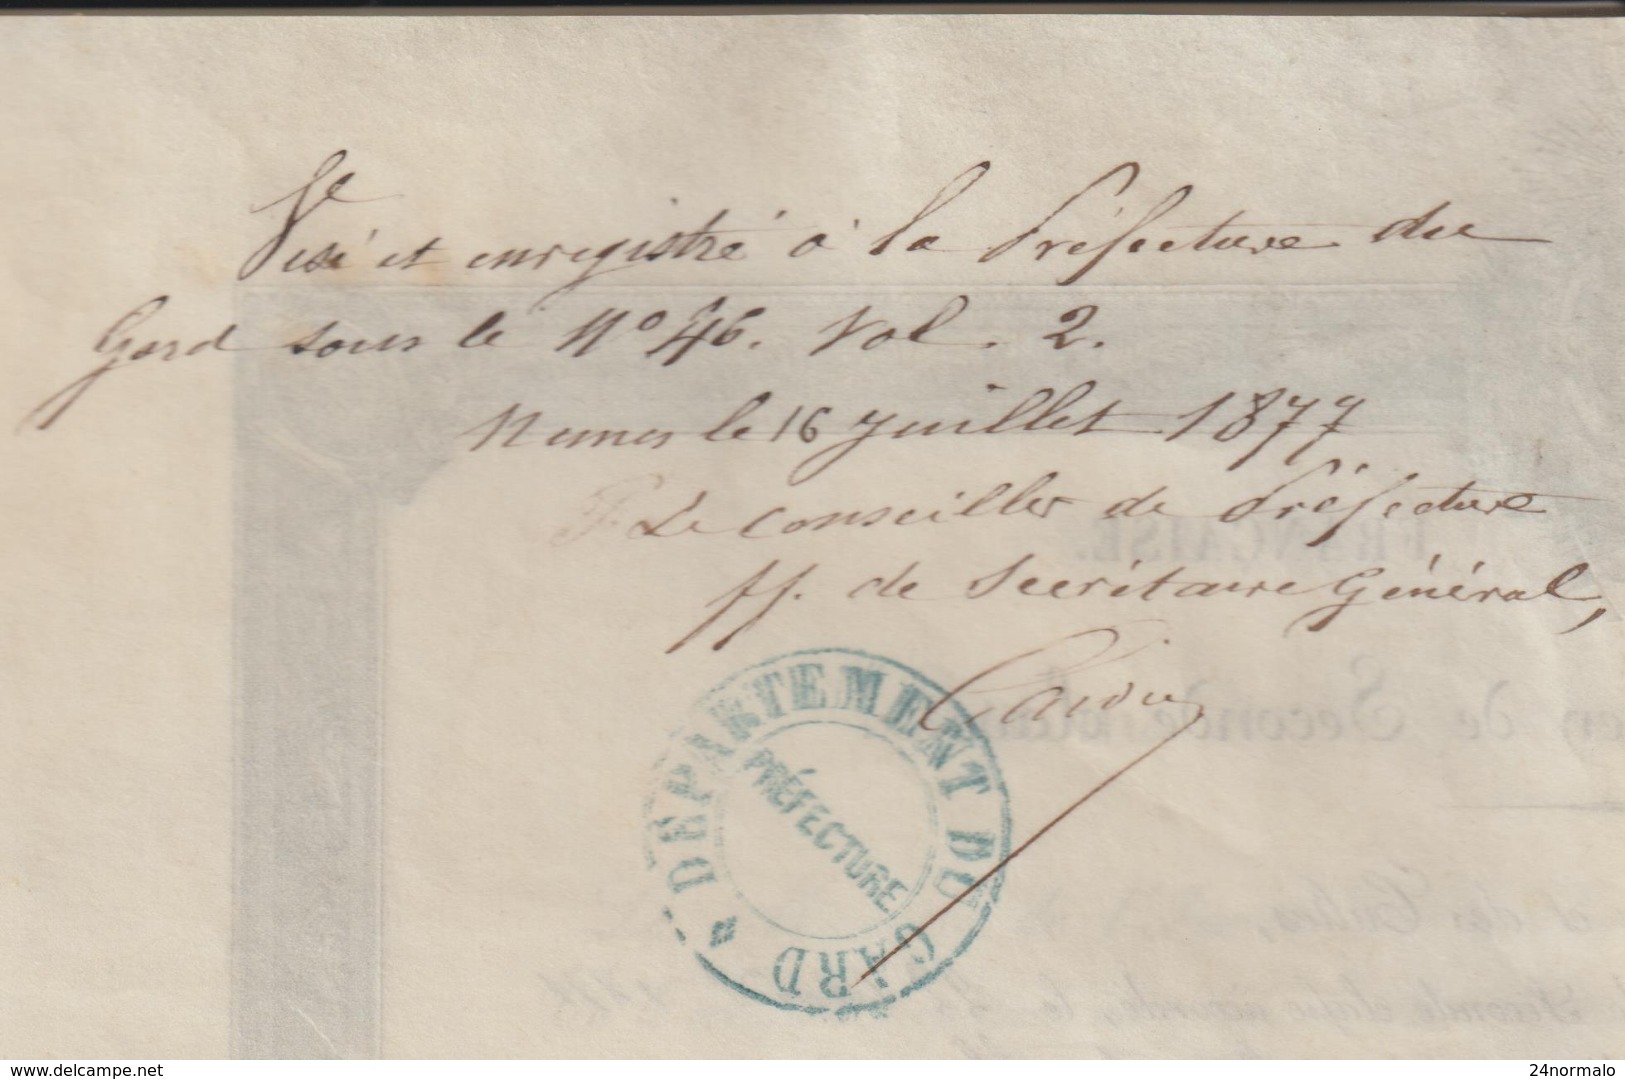 Visé et enregistré à la Préfecture du
Gard sous le No 46. Vol. 2.
Nimes le 16 Juillet 1877
P. Le Conseiller de Préfecture
ff. de Secrétaire Général,
DÉPARTEMENT DU GARD
PRÉFECTURE
FRANÇAISE.
de Seconde
www.delcampe.net
24normalo